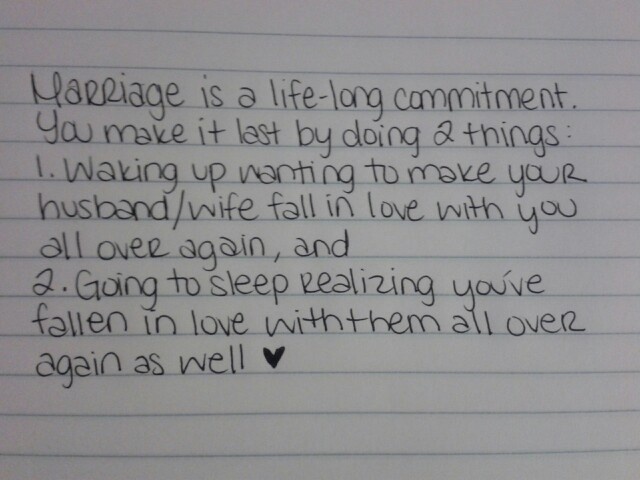 Marriage is a life-long commitment.
You make it last by doing 2 things:
1. Waking up wanting to make your
husband/wife fall in love with you
all over again, and
2. Going to sleep realizing you've
fallen in love with them all over
again as well ♥